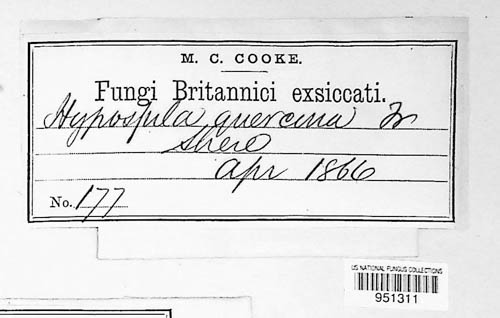 M. C. COOKE.
Fungi Britannici exsiccati.
Hypospila quercina Fr
Shere
Apr 1866
No. 177
US NATIONAL FUNGUS COLLECTIONS
951311